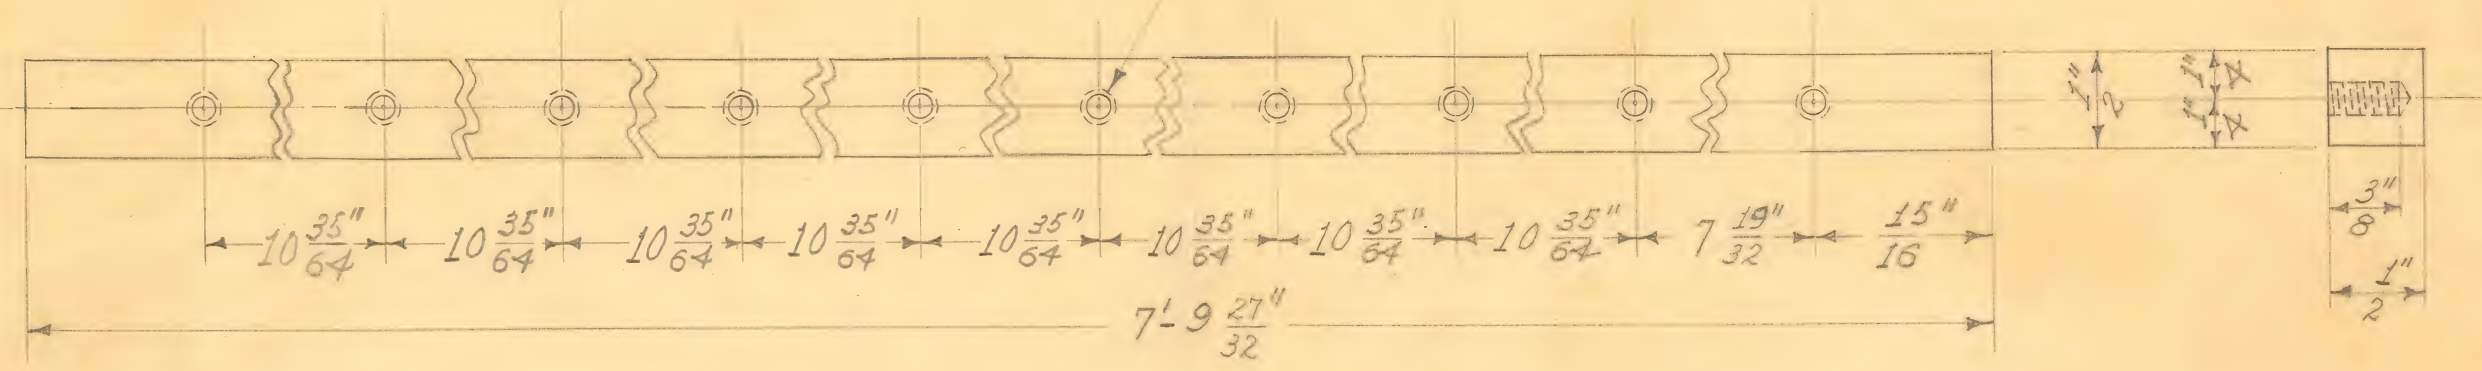 1" 2
1" 4
1" 4
10 35" 64
10 35" 64
10 35" 64
10 35" 64
10 35" 64
10 35" 64
10 35" 64
10 35" 64
7 19" 32
15" 16
3" 8
1" 2
7'-9 27" 32